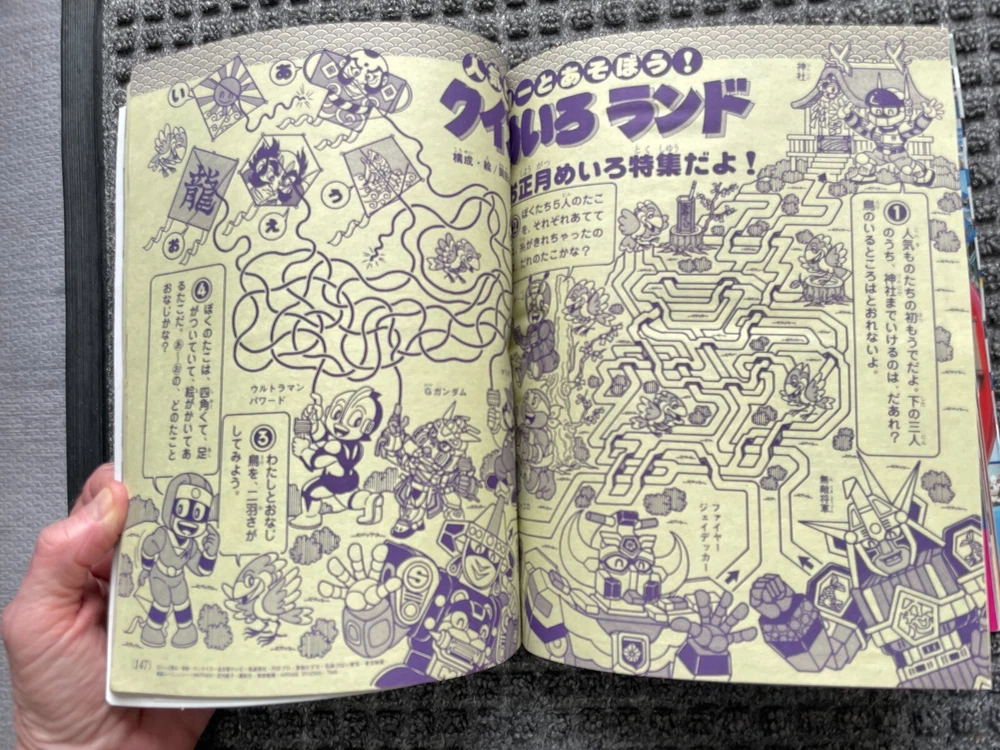 とあそぼう!
いろランド
お正月めいろ特集だよ!
とくしゅう
構成・絵/
神社
❶人気ものたちの初もうでだよ。下の三人
のうち、神社までいけるのは、だあれ?
鳥のいるところはとおれないよ。
ぼくたち5人のたこ
を、それぞれあてて
がきれちゃったの
だれのたこかな?
無敵将軍
ファイヤー
ジェイデッカー
あ
い
う
え
お
龍
❹ぼくのたこは、四角くて、足
がついていて、絵がかいてあ
るたこだ。あ〜おの、どのたこと
おなじかな?
ウルトラマン
パワード
Gガンダム
❸わたしとおなじ
鳥を、二羽さが
してみよう。
(147)